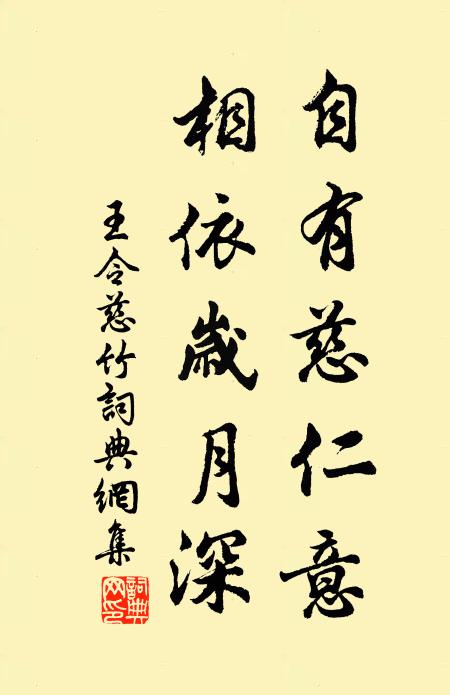 自有慈仁意
相依歲月深
王令慈竹詞典網集
詞典網印